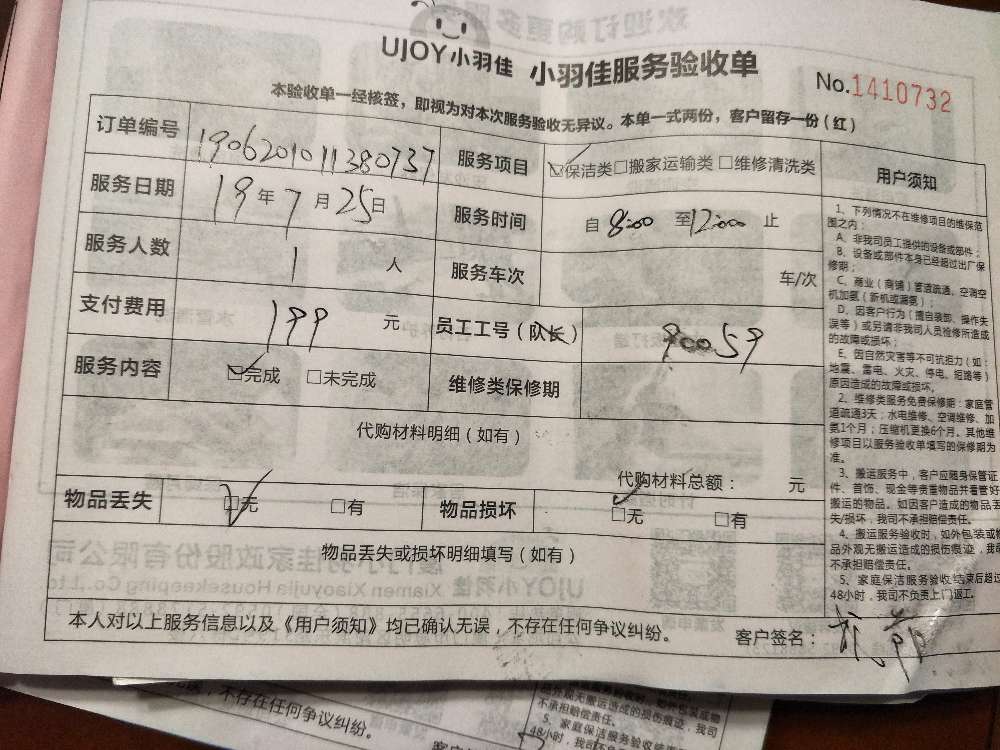 UJOY小羽佳 小羽佳服务验收单
No.1410732
本验收单一经核签，即视为对本次服务验收无异议。本单一式两份，客户留存一份（红）
订单编号 1906201011380737 服务项目 ☑保洁类□搬家运输类□维修清洗类
服务日期 19年7月25日 服务时间 自8:00至12:00止
服务人数 1人 服务车次 车/次
支付费用 199元 员工工号（队长） 90059
服务内容 ☑完成 □未完成 维修类保修期
代购材料明细（如有）
代购材料总额： 元
物品丢失 ☑无 □有 物品损坏 ☑无 □有
物品丢失或损坏明细填写（如有）
本人对以上服务信息以及《用户须知》均已确认无误，不存在任何争议纠纷。 客户签名：
用户须知
1、下列情况不在维修项目的维保范
围之内：
A、非我司员工提供的设备或部件；
B、设备或部件本身已经超过出厂保
修期；
C、商业（商铺）管道疏通、空调空
机加氨（新机或漏氨）；
D、因客户行为（擅自装卸、操作失
误等）或另请非我司人员检修所造成
的故障或损坏；
E、因自然灾害等不可抗担力（如：
地震、雷电、火灾、停电、短路等）
原因造成的故障或损坏。
2、维修类服务免费保修期：家庭管
道疏通3天；水电维修、空调维修、加
氨1个月；压缩机更换6个月。其他维
修项目以服务验收单填写的保修期为
准。
3、搬运服务中，客户应随身保管证
件、首饰、现金等贵重物品并看管好
搬运的物品。如因客户造成的物品丢
失/损坏，我司不承担赔偿责任。
4、搬运服务验收时，如外包装或物
品外观无搬运造成的损伤痕迹，我司
不承担赔偿责任。
5、家庭保洁服务验收结束后超过
48小时，我司不负责上门返工。
不存在任何争议纠纷。
品外观无搬运造成的损伤痕迹，我司
不承担赔偿责任。
5、家庭保洁服务验收结
48小时，我司不负